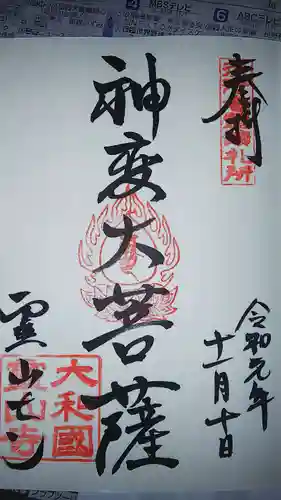 MBSテレビ
6 ABCテレビ
奉拝
札所
神変大菩薩
令和元年
十一月十日
霊山寺
大和國
霊山寺